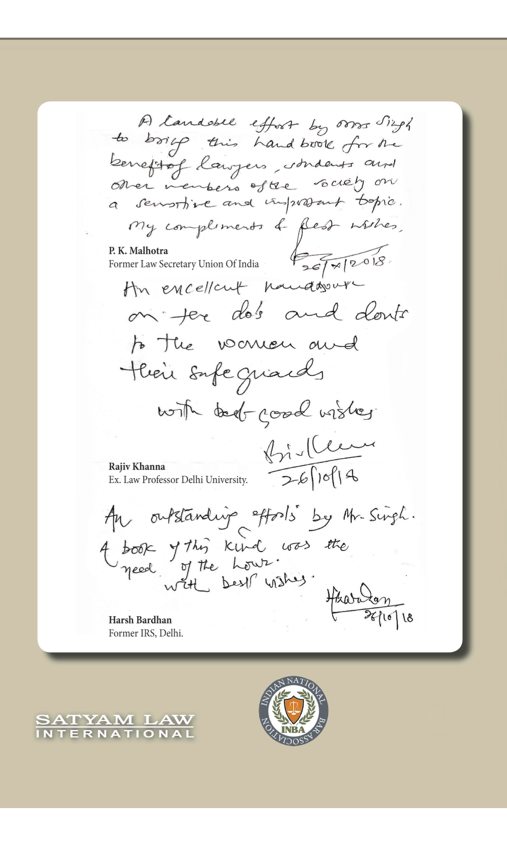 A laudable effort by Singh
to bring this handbook for the
benefit of lawyers, students and
other members of the society on
a sensitive and important topic.
My compliments & Best wishes.
P. K. Malhotra
Former Law Secretary Union Of India
26/ /2018.
An excellent
on the do's and donts
to the women and
their safeguards
with best good wishes
26/10/18
Rajiv Khanna
Ex. Law Professor Delhi University.
An outstanding efforts by Mr. Singh.
A book of this kind was the
need of the hour.
with best wishes.
26/10/18
Harsh Bardhan
Former IRS, Delhi.
SATYAM LAW
INTERNATIONAL
INDIAN NATIONAL
BAR ASSOCIATION
INBA